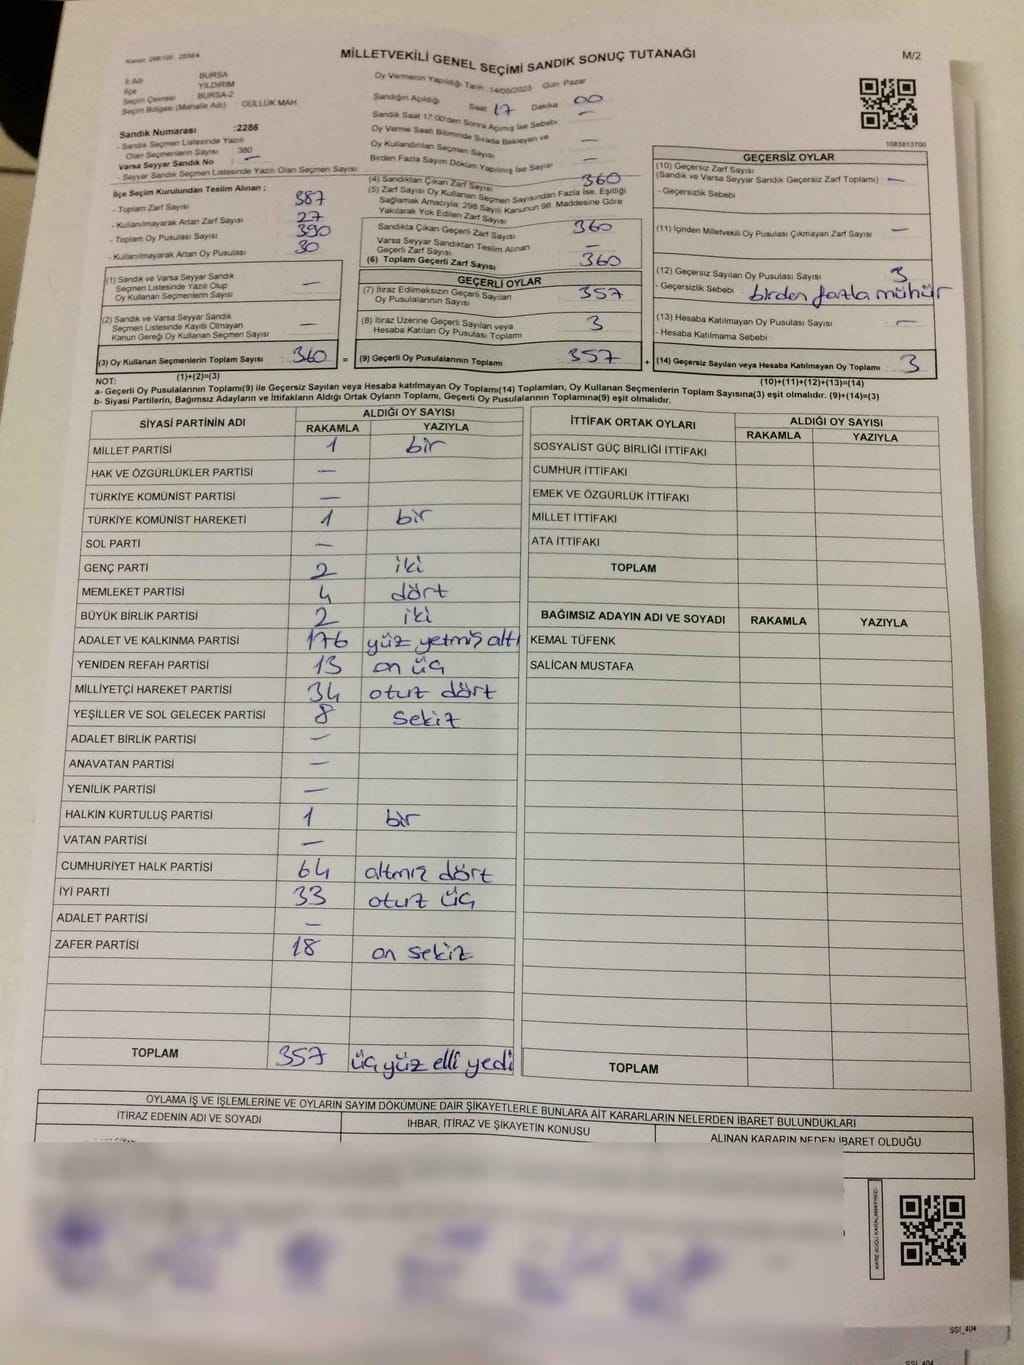 MİLLETVEKİLİ GENEL SEÇİMİ SANDIK SONUÇ TUTANAĞI
M/2
İl Adı BURSA
İlçe YILDIRIM
Seçim Çevresi BURSA-2
Seçim Bölgesi (Mahalle Adı) GÜLLÜK MAH
Sandık Numarası :2286
- Sandık Seçmen Listesinde Yazılı
Olan Seçmenlerin Sayısı 380
Varsa Seyyar Sandık No : —
- Seyyar Sandık Seçmen Listesinde Yazılı Olan Seçmen Sayısı:
Oy Vermenin Yapıldığı Tarih 14/05/2023 Gün: Pazar
Sandığın Açıldığı Saat 17 Dakika 00
Sandık Saat 17:00'den Sonra Açılmış İse Sebebi : —
Oy Verme Saati Bitiminde Sırada Bekleyen ve
Oy Kullandırılan Seçmen Sayısı —
Birden Fazla Sayım Döküm Yapılmış İse Sayısı —
1083813700
İlçe Seçim Kurulundan Teslim Alınan ;
- Toplam Zarf Sayısı 387
- Kullanılmayarak Artan Zarf Sayısı 27
- Toplam Oy Pusulası Sayısı 390
- Kullanılmayarak Artan Oy Pusulası 30
(1) Sandık ve Varsa Seyyar Sandık
Seçmen Listesinde Yazılı Olup
Oy Kullanan Seçmenlerin Sayısı —
(2) Sandık ve Varsa Seyyar Sandık
Seçmen Listesinde Kayıtlı Olmayan
Kanun Gereği Oy Kullanan Seçmen Sayısı —
(3) Oy Kullanan Seçmenlerin Toplam Sayısı 360 =
(1)+(2)=(3)
(4) Sandıktan Çıkan Zarf Sayısı 360
(5) Zarf Sayısı Oy Kullanan Seçmen Sayısından Fazla İse, Eşitliği
Sağlamak Amacıyla; 298 Sayılı Kanunun 98. Maddesine Göre
Yakılarak Yok Edilen Zarf Sayısı
Sandıkta Çıkan Geçerli Zarf Sayısı 360
Varsa Seyyar Sandıktan Teslim Alınan
Geçerli Zarf Sayısı —
(6) Toplam Geçerli Zarf Sayısı 360
GEÇERLİ OYLAR
(7) İtiraz Edilmeksizin Geçerli Sayılan
Oy Pusulalarının Sayısı 357
(8) İtiraz Üzerine Geçerli Sayılan veya
Hesaba Katılan Oy Pusulası Toplamı 3
(9) Geçerli Oy Pusulalarının Toplamı 357 +
GEÇERSİZ OYLAR
(10) Geçersiz Zarf Sayısı
(Sandık ve Varsa Seyyar Sandık Geçersiz Zarf Toplamı) —
- Geçersizlik Sebebi
(11) İçinden Milletvekili Oy Pusulası Çıkmayan Zarf Sayısı —
(12) Geçersiz Sayılan Oy Pusulası Sayısı 3
- Geçersizlik Sebebi birden fazla mühür
(13) Hesaba Katılmayan Oy Pusulası Sayısı —
- Hesaba Katılmama Sebebi
(14) Geçersiz Sayılan veya Hesaba Katılmayan Oy Toplamı 3
(10)+(11)+(12)+(13)=(14)
NOT:
a- Geçerli Oy Pusulalarının Toplamı(9) ile Geçersiz Sayılan veya Hesaba katılmayan Oy Toplamı(14) Toplamları, Oy Kullanan Seçmenlerin Toplam Sayısına(3) eşit olmalıdır. (9)+(14)=(3)
b- Siyasi Partilerin, Bağımsız Adayların ve İttifakların Aldığı Ortak Oyların Toplamı, Geçerli Oy Pusulalarının Toplamına(9) eşit olmalıdır.
SİYASİ PARTİNİN ADI ALDIĞI OY SAYISI
RAKAMLA YAZIYLA
MİLLET PARTİSİ 1 bir
HAK VE ÖZGÜRLÜKLER PARTİSİ —
TÜRKİYE KOMÜNİST PARTİSİ —
TÜRKİYE KOMÜNİST HAREKETİ 1 bir
SOL PARTİ —
GENÇ PARTİ 2 iki
MEMLEKET PARTİSİ 4 dört
BÜYÜK BİRLİK PARTİSİ 2 iki
ADALET VE KALKINMA PARTİSİ 176 yüz yetmiş altı
YENİDEN REFAH PARTİSİ 13 on üç
MİLLİYETÇİ HAREKET PARTİSİ 34 otuz dört
YEŞİLLER VE SOL GELECEK PARTİSİ 8 sekiz
ADALET BİRLİK PARTİSİ —
ANAVATAN PARTİSİ —
YENİLİK PARTİSİ —
HALKIN KURTULUŞ PARTİSİ 1 bir
VATAN PARTİSİ —
CUMHURİYET HALK PARTİSİ 64 altmış dört
İYİ PARTİ 33 otuz üç
ADALET PARTİSİ —
ZAFER PARTİSİ 18 on sekiz
TOPLAM 357 üç yüz elli yedi
İTTİFAK ORTAK OYLARI ALDIĞI OY SAYISI
RAKAMLA YAZIYLA
SOSYALİST GÜÇ BİRLİĞİ İTTİFAKI
CUMHUR İTTİFAKI
EMEK VE ÖZGÜRLÜK İTTİFAKI
MİLLET İTTİFAKI
ATA İTTİFAKI
TOPLAM
BAĞIMSIZ ADAYIN ADI VE SOYADI RAKAMLA YAZIYLA
KEMAL TÜFENK
SALİCAN MUSTAFA
TOPLAM
OYLAMA İŞ VE İŞLEMLERİNE VE OYLARIN SAYIM DÖKÜMÜNE DAİR ŞİKAYETLERLE BUNLARA AİT KARARLARIN NELERDEN İBARET BULUNDUKLARI
İTİRAZ EDENİN ADI VE SOYADI İHBAR, İTİRAZ VE ŞİKAYETİN KONUSU ALINAN KARARIN NEDEN İBARET OLDUĞU
KARE KODU KARALAMAYINIZ!
SSİ_404
SSİ_404